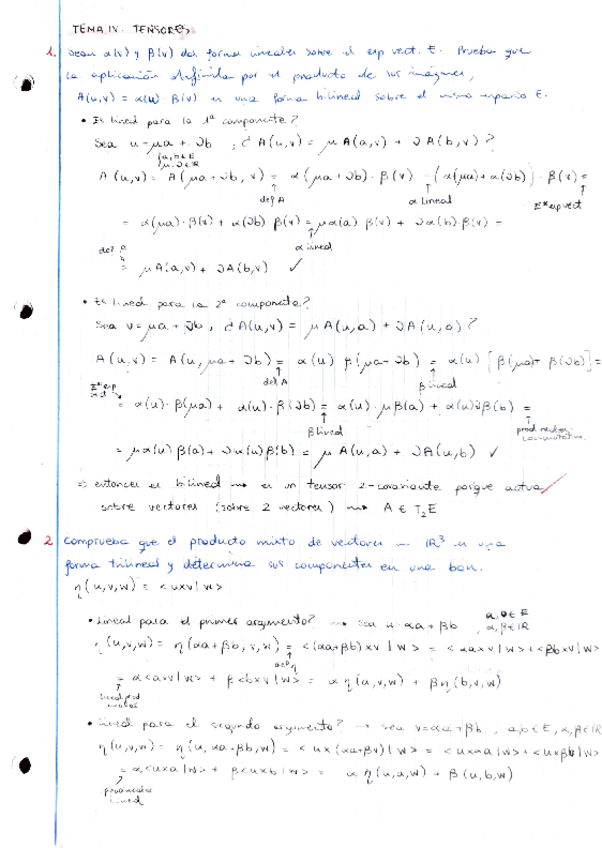 TEMA IV. TENSORES
1. Sean α(v) y β(v) dos formas lineales sobre el esp vect. E. Prueba que
la aplicación definida por el producto de sus imágenes,
A(u,v) = α(u) β(v) es una forma bilineal sobre el mismo espacio E.
• Es lineal para la 1ª componente?
Sea u = μa + λb ; ¿ A(u,v) = μ A(a,v) + λ A(b,v) ?
A(u,v) = A(μa + λb, v) = α(μa + λb) · β(v) = (α(μa) + α(λb)) · β(v) =
def A α lineal E* esp vect
= α(μa) · β(v) + α(λb) β(v) = μα(a) β(v) + λα(b) · β(v) =
α lineal
= μA(a,v) + λA(b,v) ✓
• Es lineal para la 2ª componente?
Sea v = μa + λb, ¿ A(u,v) = μ A(u,a) + λ A(u,b) ?
A(u,v) = A(u, μa + λb) = α(u) β(μa + λb) = α(u) [β(μa) + β(λb)] =
def A β lineal
= α(u) · β(μa) + α(u) · β(λb) = α(u) · μβ(a) + α(u) λβ(b) =
β lineal
= μα(u) β(a) + λα(u) β(b) = μ A(u,a) + λA(u,b) ✓
⇒ entonces es bilineal → es un tensor 2-covariante porque actua
sobre vectores (sobre 2 vectores) → A ∈ T₂E
2 Comprueba que el producto mixto de vectores en ℝ³ es una
forma trilineal y determina sus componentes en una base.
η(u,v,w) = <u×v|w>
• Lineal para el primer argumento? → sea u = αa + βb, a,b ∈ E α,β ∈ ℝ
η(u,v,w) = η(αa + βb, v, w) = <(αa + βb) × v | w> = <αa×v|w> + <βb×v|w>
def η
= α<a×v|w> + β<b×v|w> = α η(a,v,w) + βη(b,v,w)
• Lineal para el segundo argumento? → sea v = αa + βb, a,b ∈ E, α,β ∈ ℝ
η(u,v,w) = η(u, αa + βb, w) = <u × (αa + βv)|w> = <u×αa|w> + <u×βb|w>
= α<u×a|w> + β<u×b|w> = α η(u,a,w) + β(u,b,w)